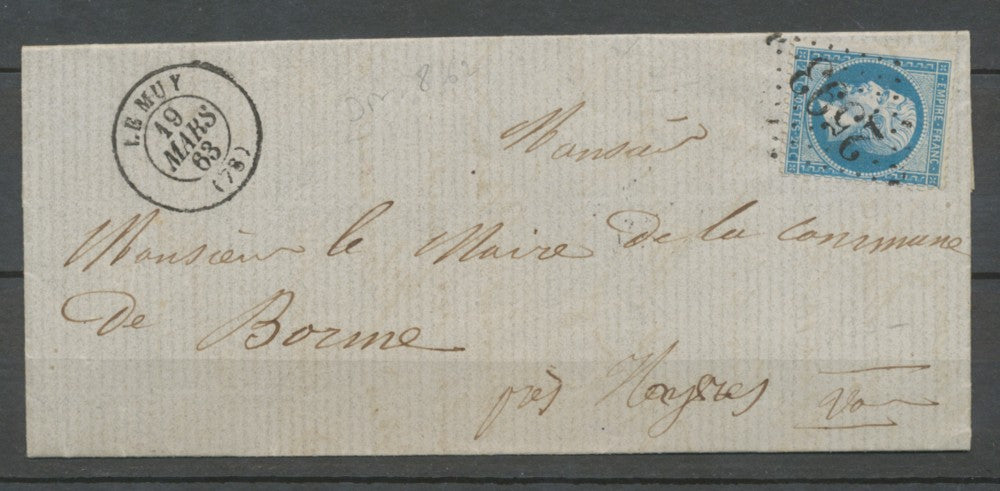 LE MUY
19
MARS
63
(78)
EMPIRE FRANC
Monsieur
Monsieur le Maire de la Commune
de Borme
près Hyères Var